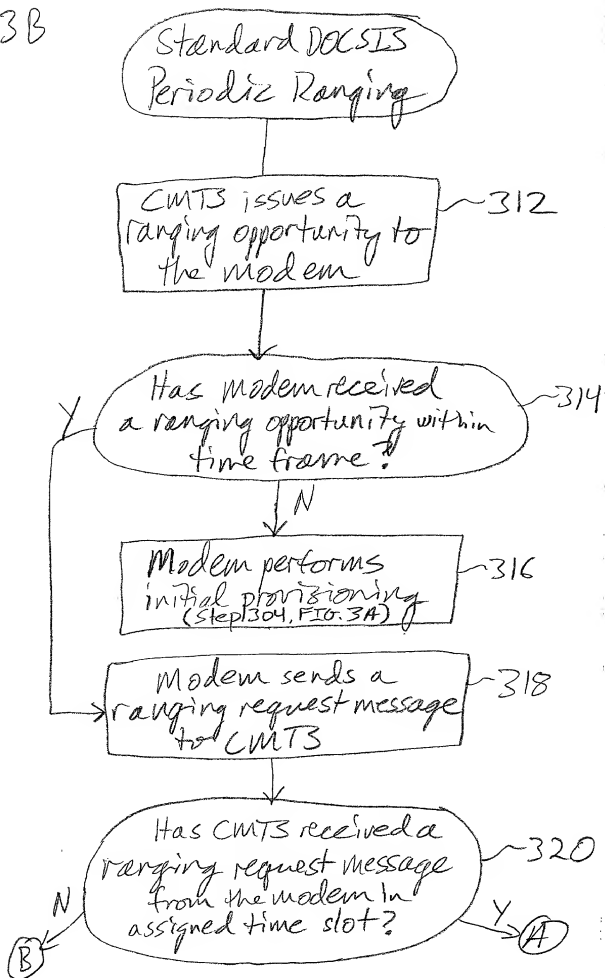 3B
Standard DOCSIS
Periodic Ranging
CMTS issues a
ranging opportunity to
the modem
312
Has modem received
a ranging opportunity within
time frame?
314
Y
N
Modem performs
initial provisioning
(Step 304, FIG. 3A)
316
Modem sends a
ranging request message
to CMTS
318
Has CMTS received a
ranging request message
from the modem in
assigned time slot?
320
N
B
Y
A